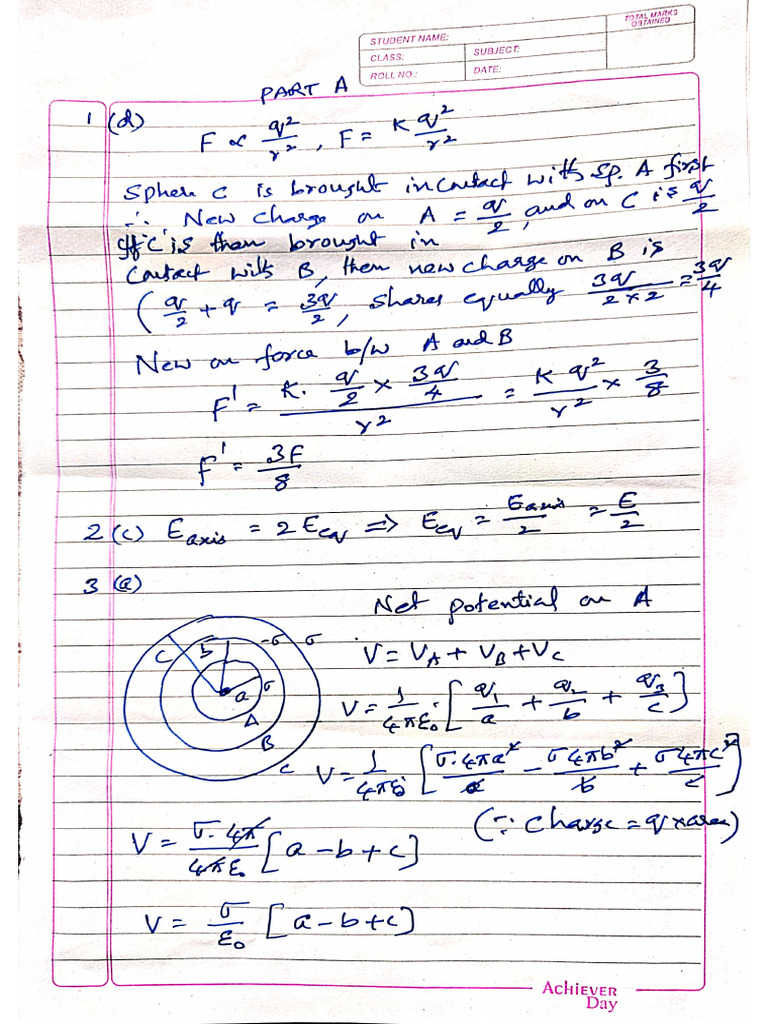 STUDENT NAME:
TOTAL MARKS OBTAINED
CLASS:
SUBJECT:
ROLL NO.:
DATE:
PART A
1 (d) F ∝ q²/r² , F = K q²/r²
Sphere C is brought in contact with sp. A first
∴ New charge on A = q/2, and on C is q/2
If 'C' is then brought in
contact with B, then new charge on B is
(q/2 + q = 3q/2, shares equally 3q/2×2 = 3q/4
New on force b/w A and B
F' = K. q/2 × 3q/4 / r² = K q²/r² × 3/8
F' = 3F/8
2 (c) E axis = 2 E eq ⇒ E eq = E axis/2 = E/2
3 (a)
Net potential on A
c b -σ σ
V = VA + VB + VC
a σ
V = 1/4πε₀ [q₁/a + q₂/b + q₃/c]
A
B
C
V = 1/4πε₀ [σ.4πa²/a - σ4πb²/b + σ4πc²/c]
(∵ charge = q × area)
V = σ.4π/4πε₀ [a - b + c]
V = σ/ε₀ [a - b + c]
ACHIEVER
Day